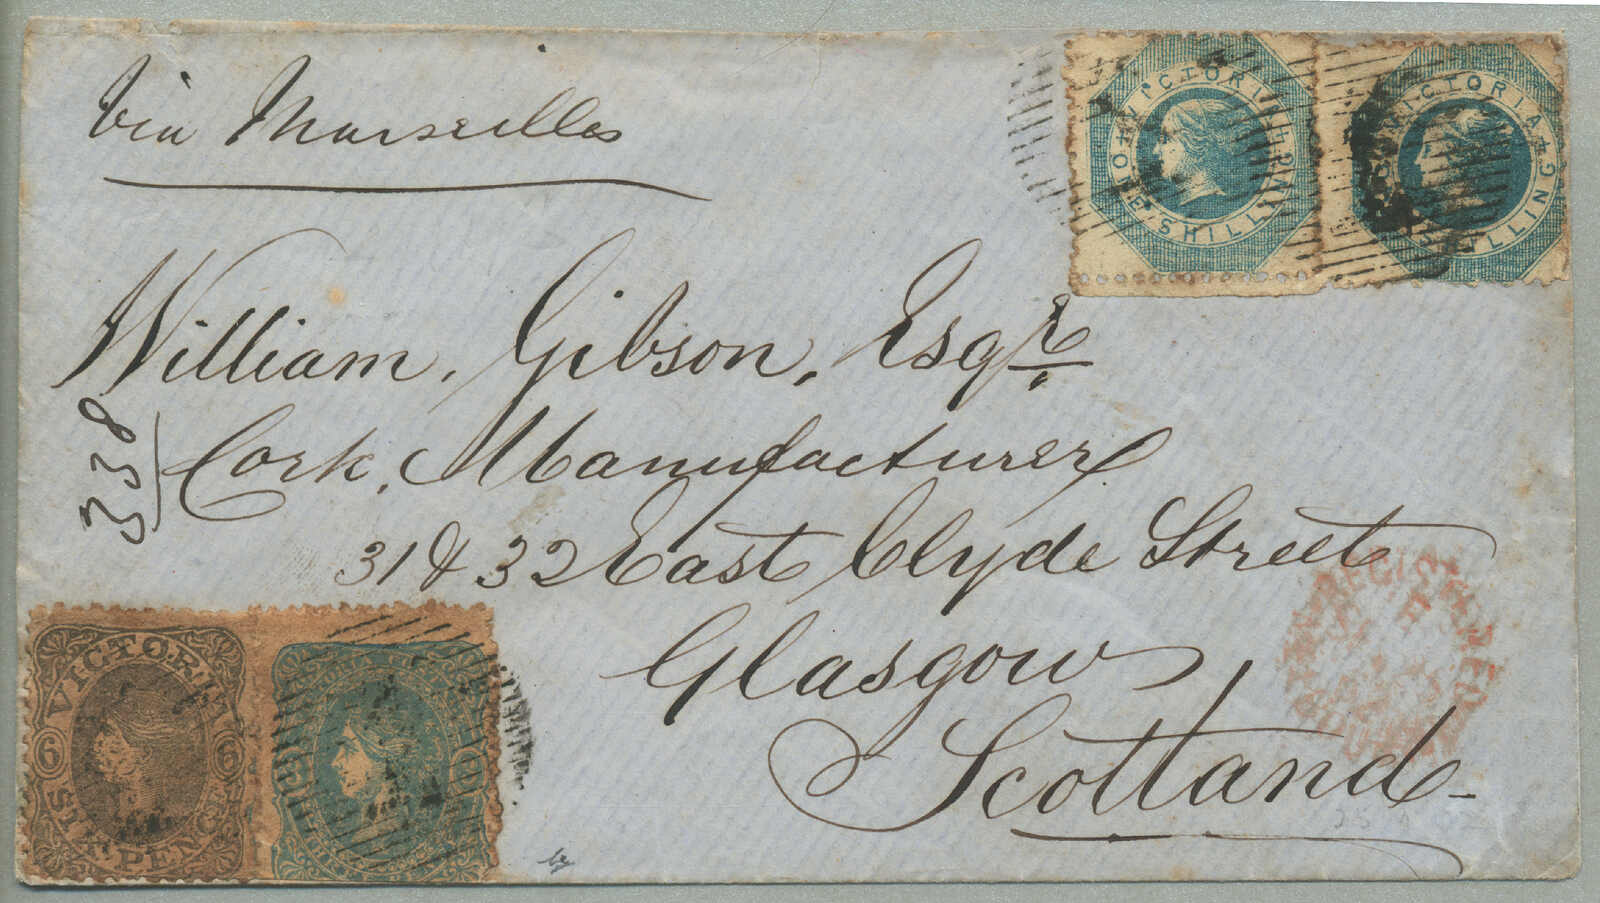 via Marseilles
VICTORIA
ONE SHILLING
VICTORIA
SHILLING
William, Gibson, Esqre
338
Cork, Manufacturer
31 & 32 East Clyde Street
Glasgow
Scotland
REGISTERED
VICTORIA
6 6
SIX PENCE